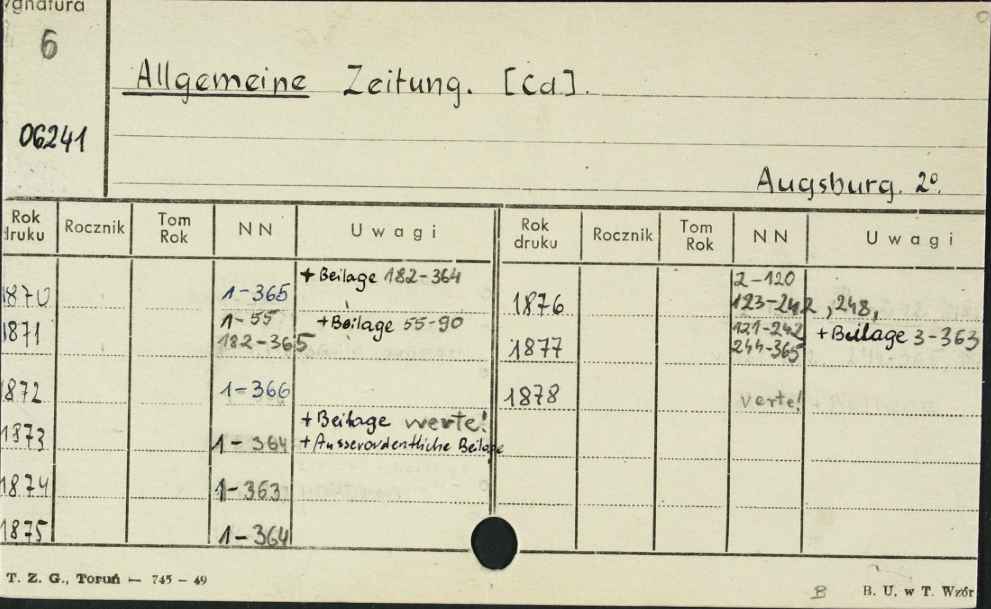 ygnatura
6
Allgemeine Zeitung. [Cd].
06241
Augsburg. 2º.
Rok druku Rocznik Tom Rok NN Uwagi
1870 1-365 + Beilage 182-364
1871 1-55 + Beilage 55-90
182-365
1872 1-366
1873 1-364 + Beilage werte!
+ Ausserordentliche Beilage
1874 1-363
1875 1-364
Rok druku Rocznik Tom Rok NN Uwagi
2-120
1876 123-242, 248,
1877 121-242 + Beilage 3-363
244-365
1878 verte!
T. Z. G., Toruń — 745 — 49
B
B. U. w T. Wzór